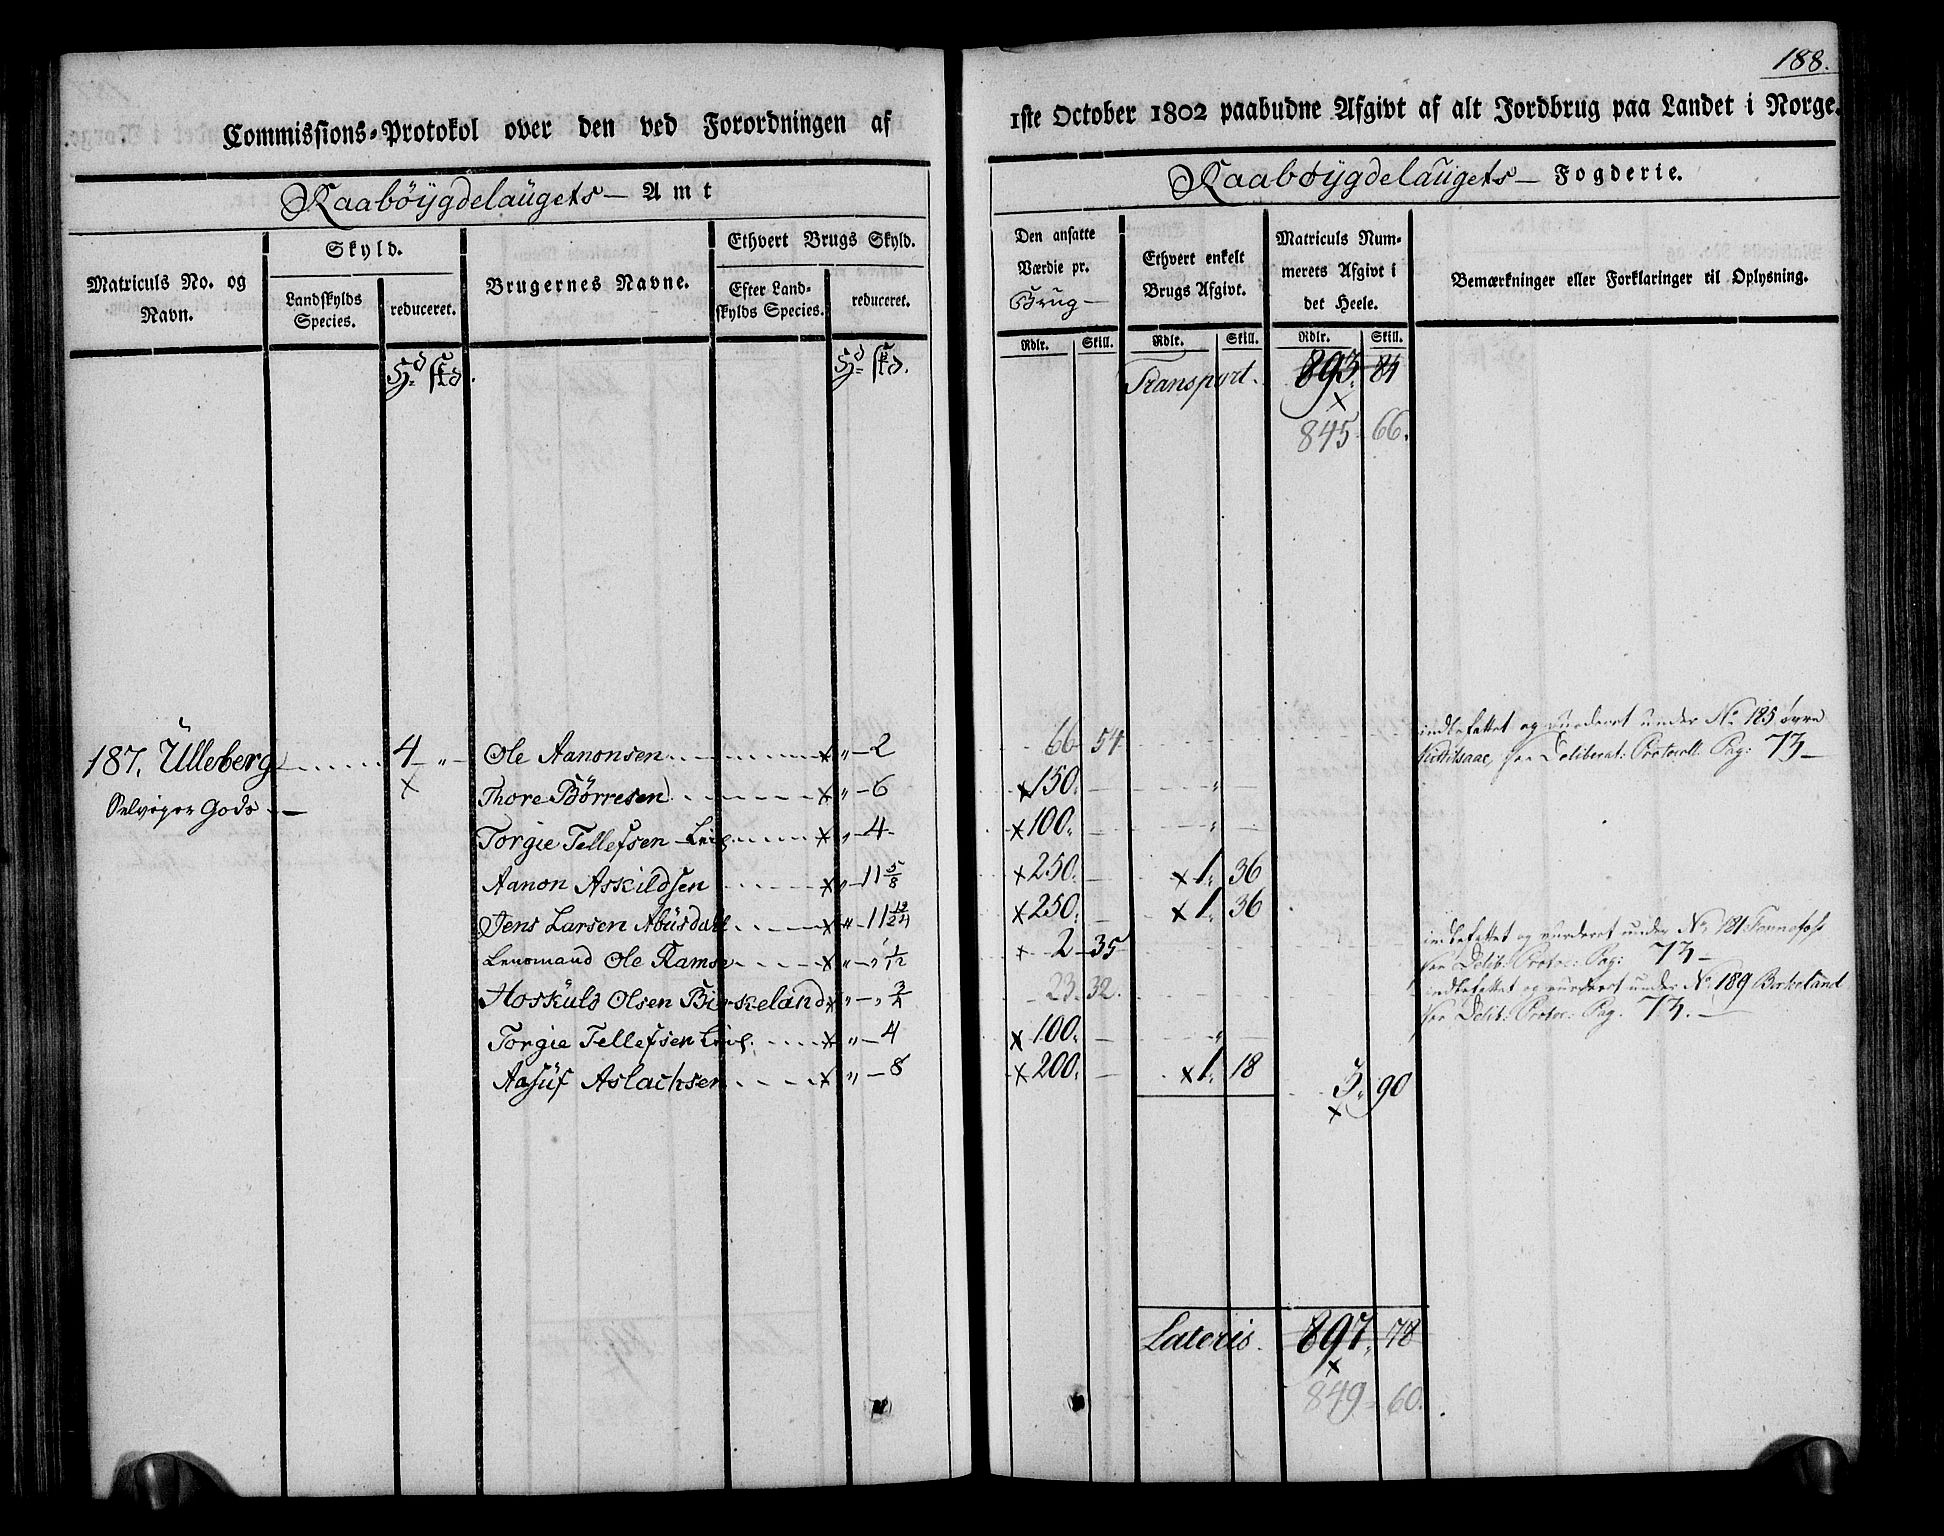 188.
Commissions-Protokol over den ved Forordningen af
1ste October 1802 paabudne Afgivt af alt Jordbrug paa Landet i Norge.
Raabøÿgdelaugets — Amt
Raabøÿgdelaugets — Fogderie.
Matriculs No. og Navn.
Skyld.
Landskylds Species.
reduceret.
Brugernes Navne.
Ethvert Brugs Skyld.
Efter Landskylds Species.
reduceret.
Den ansatte Værdie pr. Brug —
Ethvert enkelt Brugs Afgivt.
Matriculs Nummerets Afgivt i det Heele.
Bemærkninger eller Forklaringer til Oplysning.
Rdlr. Skill. Rdlr. Skill. Rdlr. Skill.
Transport. 893. 84
845 66.
187. Ülleberg 4 „ Ole Aanonsen „ — 2 66 54 indbefattet og vurderet under No 185 øvre
Kittilsaae, Deliberat: Protocoll Pag: 73 —
Gods — Thore Börresen „ — 6 150.
Torgie Tellefsen „ — 4 100.
Aanon Askildsen „ — 11 5/8 250. 1. 36
Jens Larsen Abüsdall „ — 11 13/24 250. 1. 36
Lensmand Ole Ramse „ — „ 1/12 2 — 35 indbefattet og vurderet under No 181
Delib: Protoc: Pag: 73 —
Hoskuld Olsen Birkeland „ — „ 3/4 23. 32. indbefattet og vurderet under No 189 Birkeland
Delib: Protoc: Pag. 73. —
Torgie Tellefsen „ — 4 100.
Aasüf Aslachsen „ — 8 200. 1. 18
3. 90
Lateris. 897. 78
849. 60.